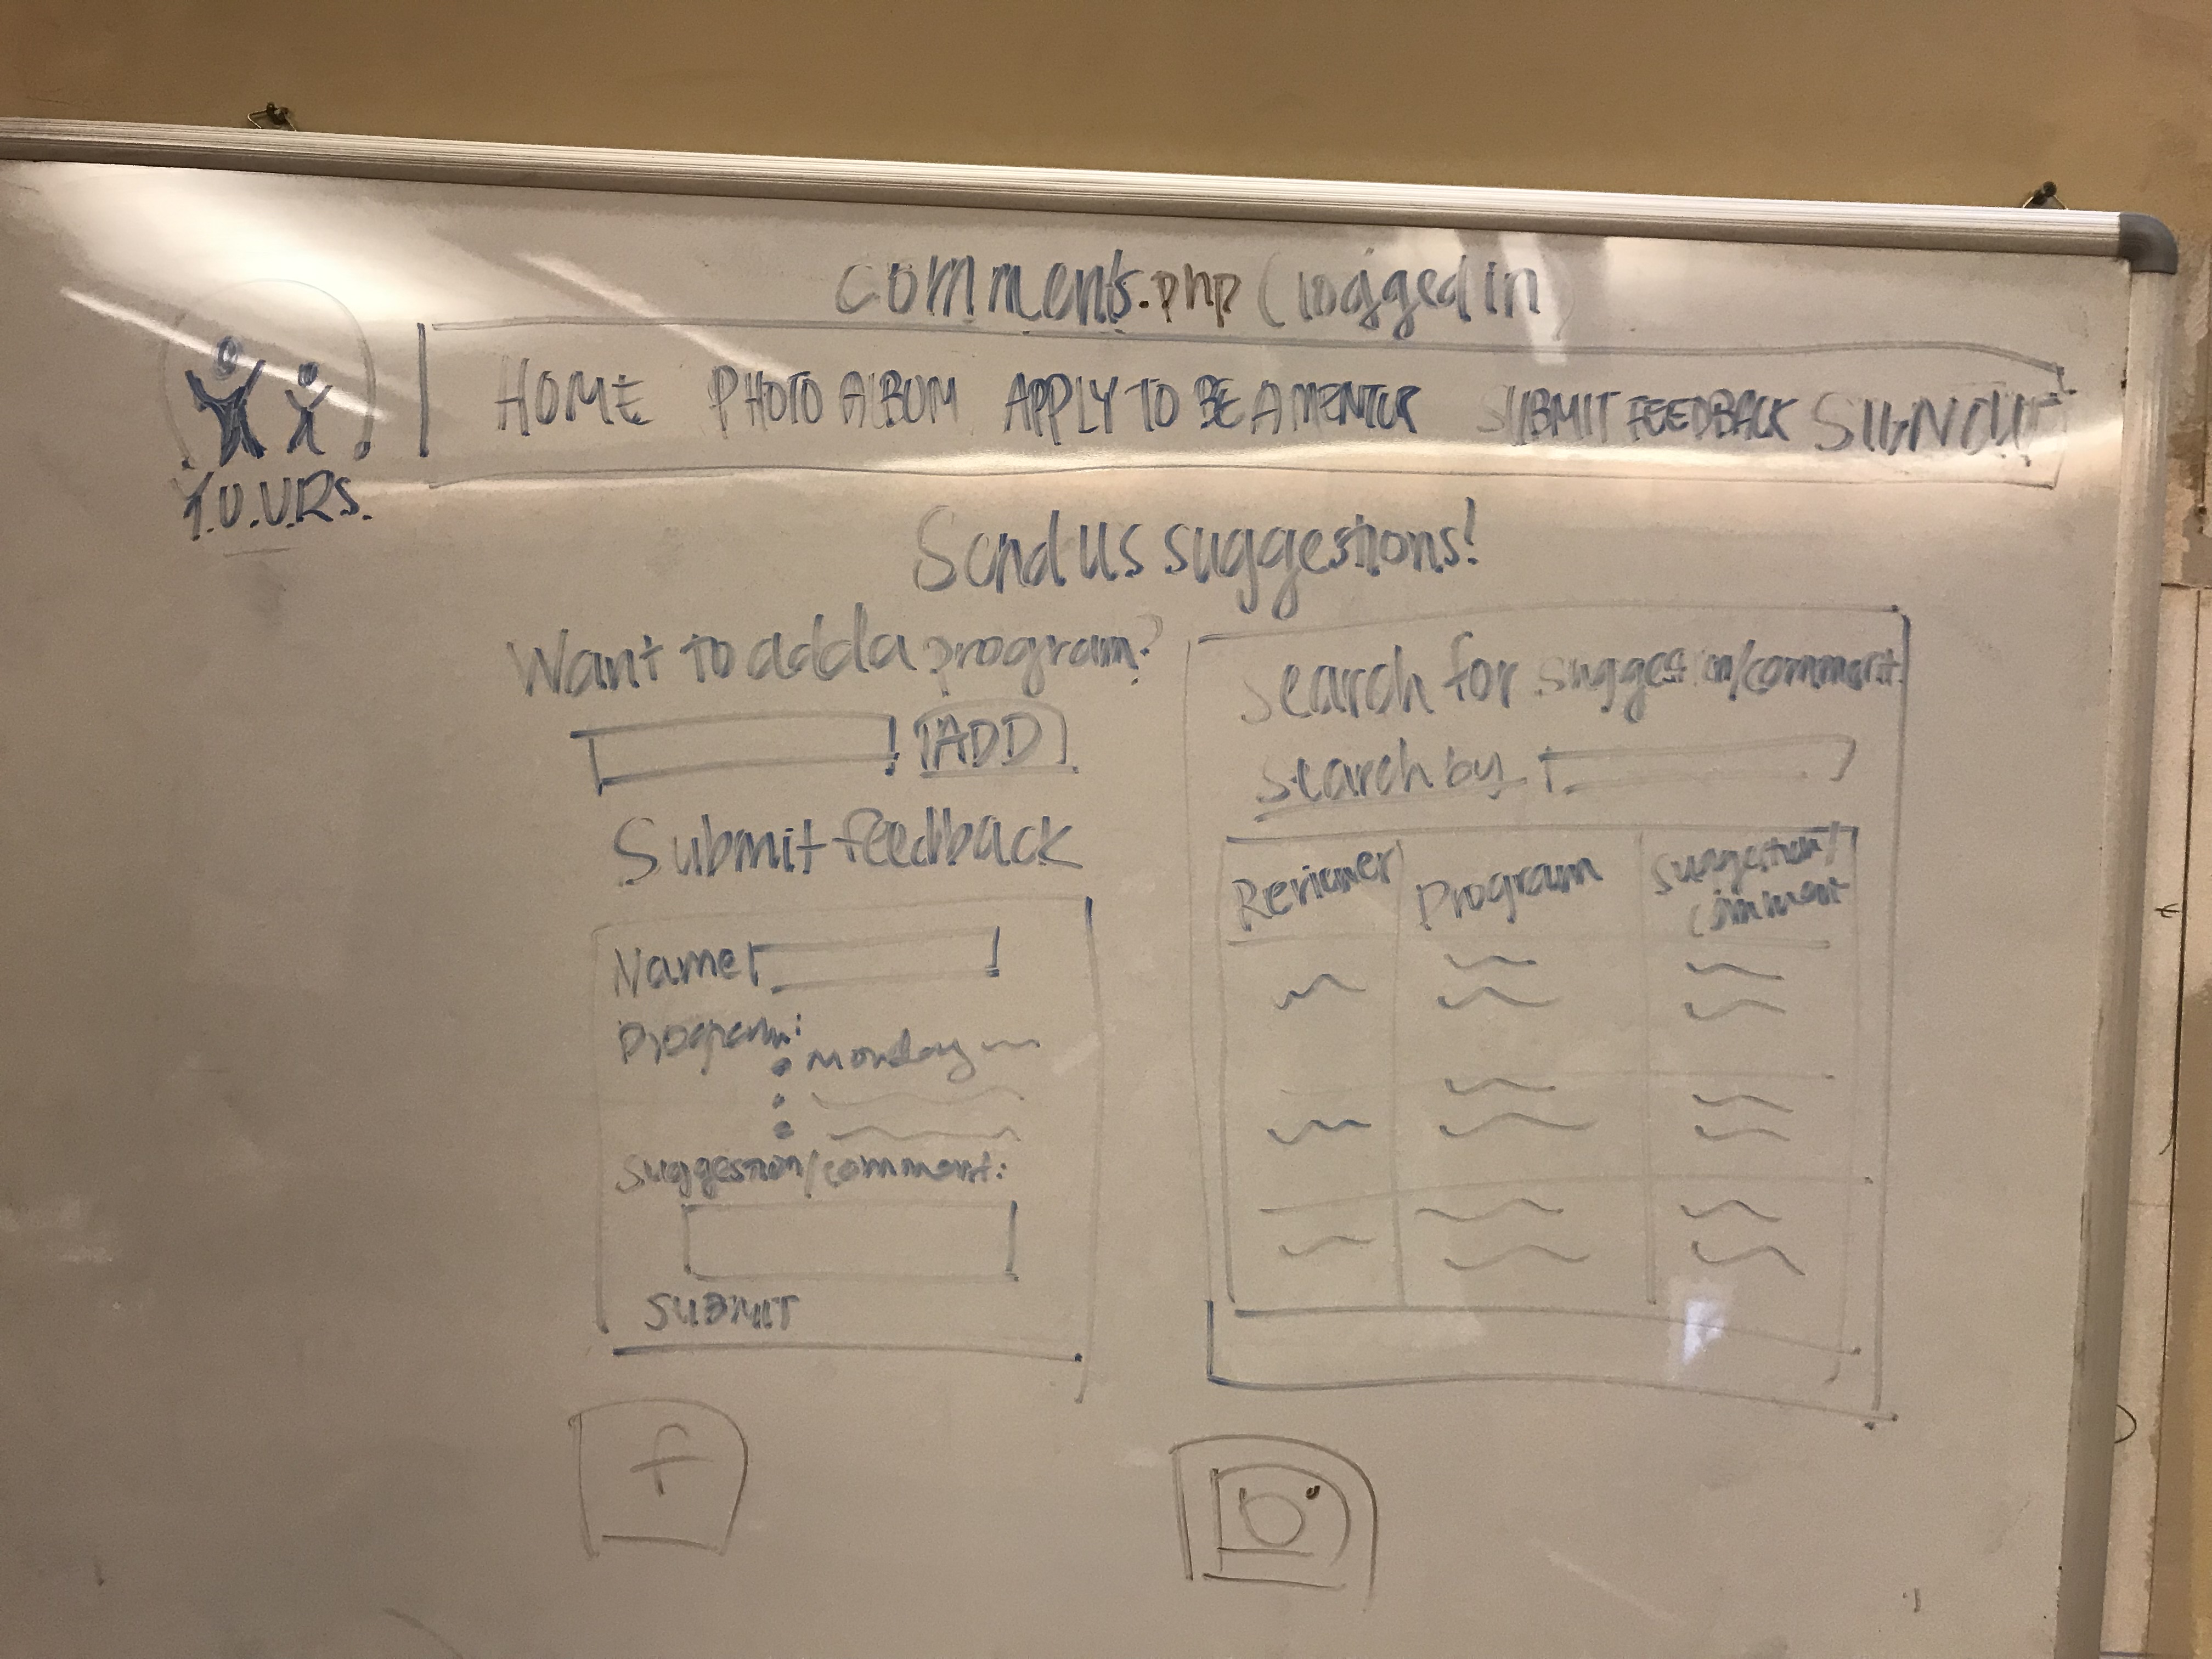 comments.php (logged in)
HOME PHOTO ALBUM APPLY TO BE A MENTOR SUBMIT FEEDBACK SIGN OUT
Y.O.U.R.S.
Send us suggestions!
Want to add a program?
ADD
Submit feedback
Name
Program:
Monday
Suggestion/comment:
SUBMIT
Search for suggestion/comment
Search by
Reviewer Program Suggestion/
comment
f